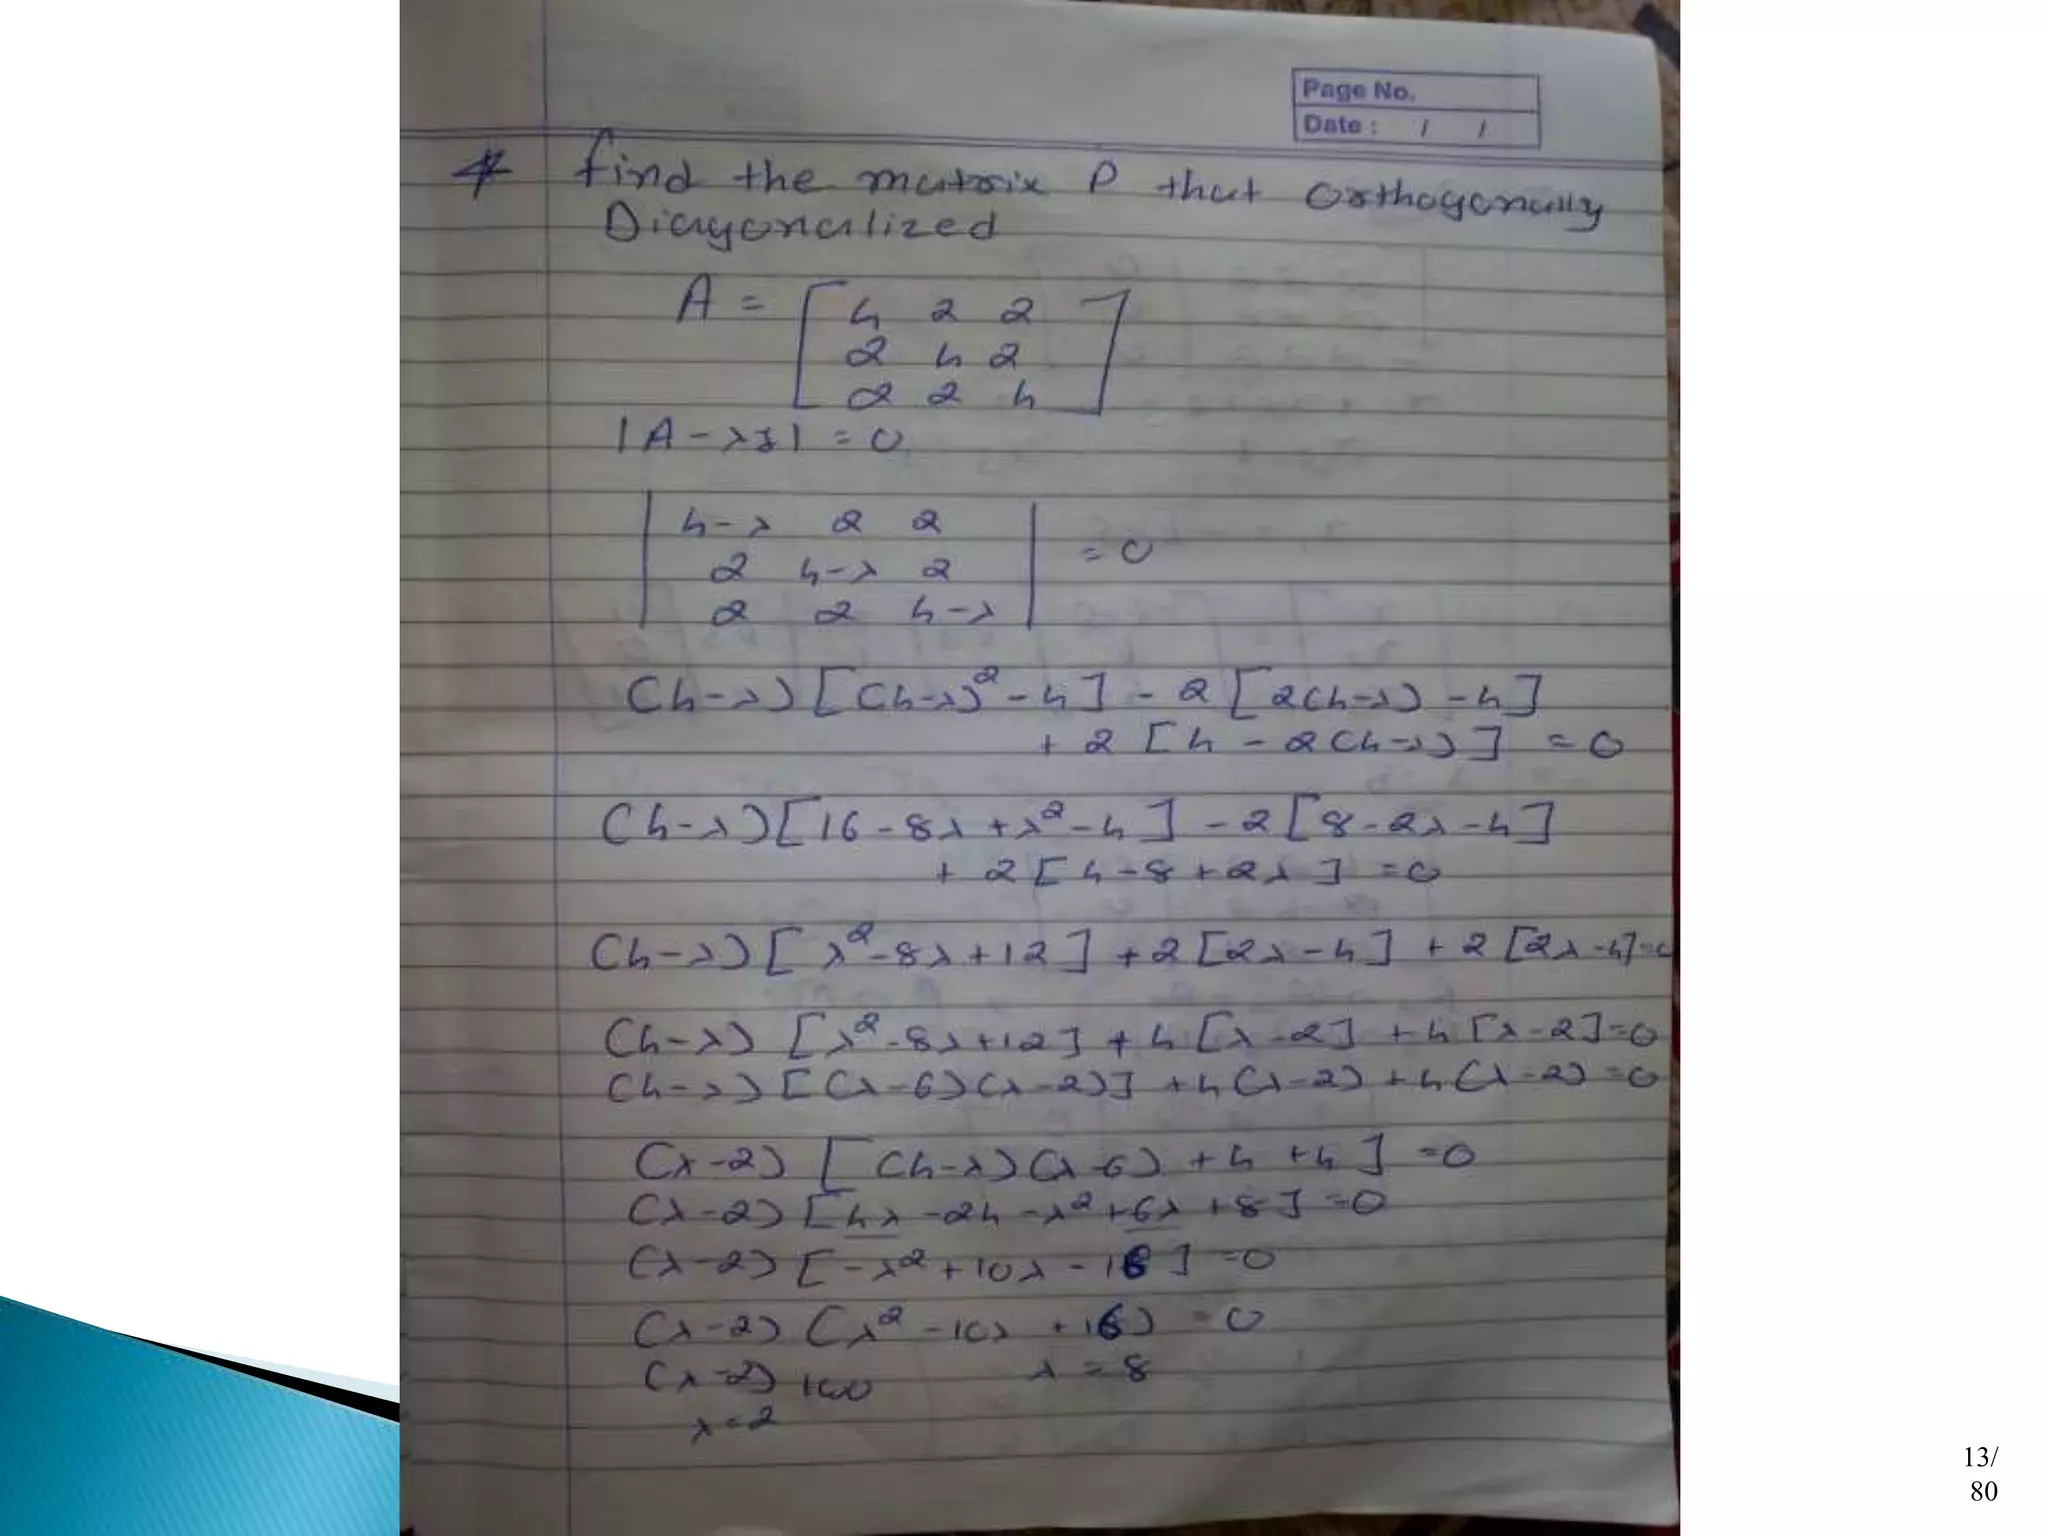 Page No.
Date : / /
* find the matrix P that Orthogonally
Diagonalized
A = [ 4 2 2
2 4 2
2 2 4 ]
|A - λI| = 0
| 4-λ 2 2 |
2 4-λ 2 = 0
2 2 4-λ
(4-λ) [(4-λ)² - 4] - 2 [2(4-λ) - 4]
+ 2 [4 - 2(4-λ)] = 0
(4-λ) [16 - 8λ + λ² - 4] - 2 [8 - 2λ - 4]
+ 2 [4 - 8 + 2λ] = 0
(4-λ) [λ² - 8λ + 12] + 2 [2λ - 4] + 2 [2λ - 4] = 0
(4-λ) [λ² - 8λ + 12] + 4 [λ - 2] + 4 [λ - 2] = 0
(4-λ) [(λ-6)(λ-2)] + 4(λ-2) + 4(λ-2) = 0
(λ-2) [(4-λ)(λ-6) + 4 + 4] = 0
(λ-2) [4λ - 24 - λ² + 6λ + 8] = 0
(λ-2) [-λ² + 10λ - 16] = 0
(λ-2) (λ² - 10λ + 16) = 0
(λ-2) λ = 8
λ = 2
13/
80